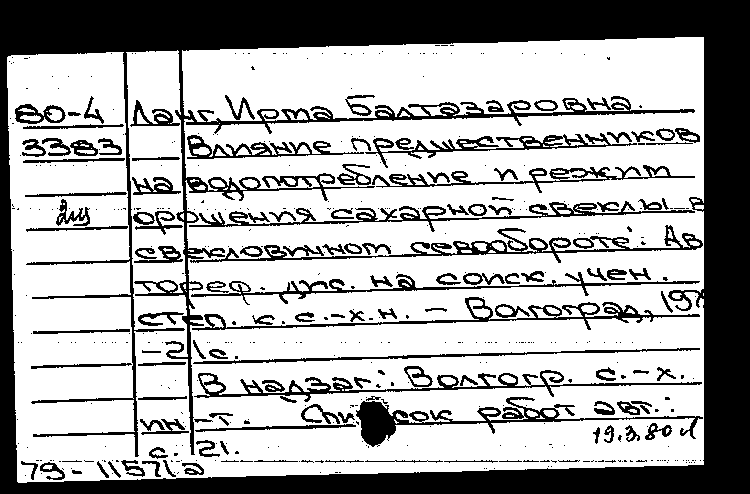 80-4 Ланг, Ирма Балтазаровна.
3383 Влияние предшественников
на водопотребление и режим
орошения сахарной свеклы в
свекловичном севообороте: Ав
тореф. дис. на соиск. учен.
степ. к.с.-х.н. — Волгоград, 197
-21с.
В надзаг.: Волгогр. с.-х.
ин-т. Список работ авт.:
с. 21. 19.3.80
79-11571а